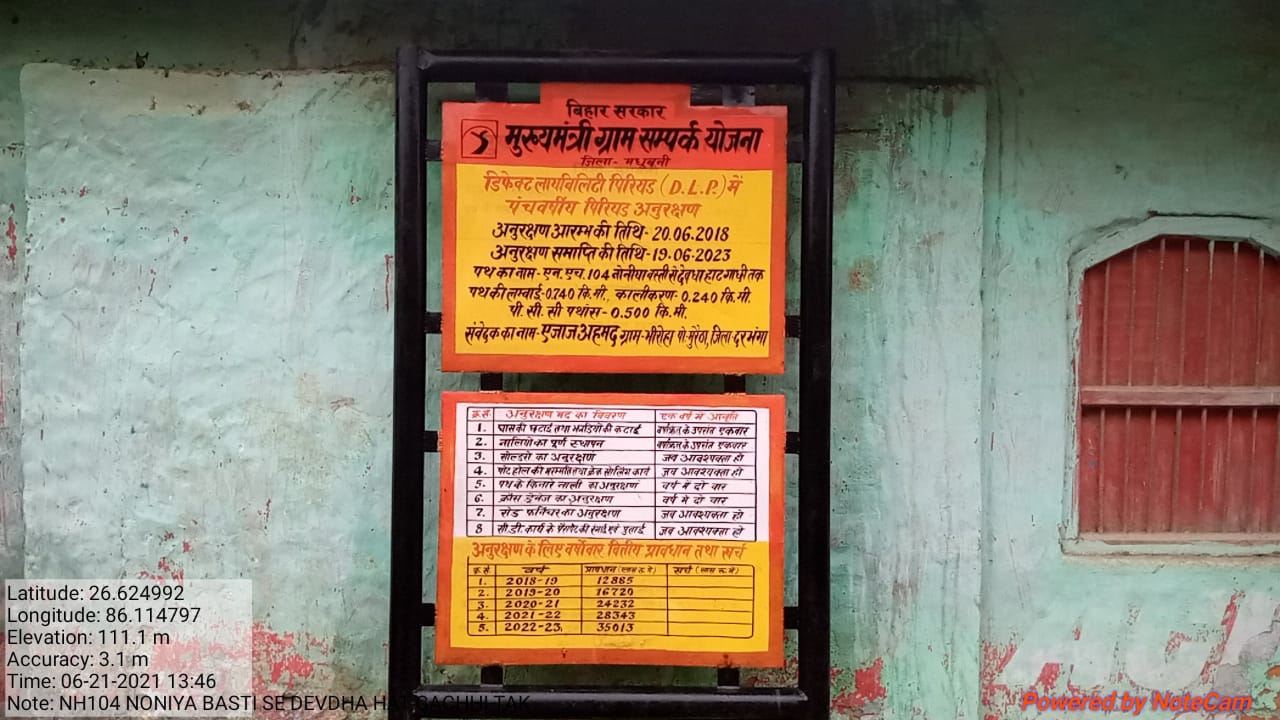 बिहार सरकार
मुख्यमंत्री ग्राम सम्पर्क योजना
जिला- मधुबनी
डिफेक्ट लायविलिटी पिरियड (D.L.P.) में
पंचवर्षीय पिरियड अनुरक्षण
अनुरक्षण आरम्भ की तिथि- 20.06.2018
अनुरक्षण समाप्ति की तिथि- 19.06.2023
पथ का नाम- एन. एच. 104 नोनीया बस्ती से देवधा हाट गाछी तक
पथ की लम्बाई- 0.740 कि.मी., कालीकरण- 0.240 कि.मी.
पी. सी. सी पथांस- 0.500 कि.मी.
संवेदक का नाम- एजाज अहमद ग्राम- भीरोहा पो- मुरैठा, जिला- दरभंगा
क्र.सं. अनुरक्षण मद का विवरण एक वर्ष में आवृति
1. घास की छटाई तथा झाड़ियों की कटाई वर्षाऋतु के उपरांत एकवार
2. नालियो का पूर्ण स्थापन वर्षाऋतु के उपरांत एकवार
3. सोल्डरो का अनुरक्षण जब आवश्यक्ता हो
4. पोट होल की मरम्मति तथा क्रेक सीलिंग कार्य जब आवश्यक्ता हो
5. पथ के किनारे नाली का अनुरक्षण वर्ष मे दो वार
6. क्रौस ड्रेनेज का अनुरक्षण वर्ष मे दो वार
7. रोड फर्निचर का अनुरक्षण जब आवश्यक्ता हो
8 सी.डी. कार्य के पैरापेट की रंगाई एवं पुताई जब आवश्यक्ता हो
अनुरक्षण के लिए वर्षोवार वित्तीय प्रावधान तथा खर्च
क्र.सं. वर्ष प्रावधान (लाख रू. मे) खर्च (लाख रू. मे)
1. 2018-19 12865
2. 2019-20 16720
3. 2020-21 24232
4. 2021-22 28343
5. 2022-23. 35013
Latitude: 26.624992
Longitude: 86.114797
Elevation: 111.1 m
Accuracy: 3.1 m
Time: 06-21-2021 13:46
Note: NH104 NONIYA BASTI SE DEVDHA HAT GACHHI TAK
Powered by NoteCam